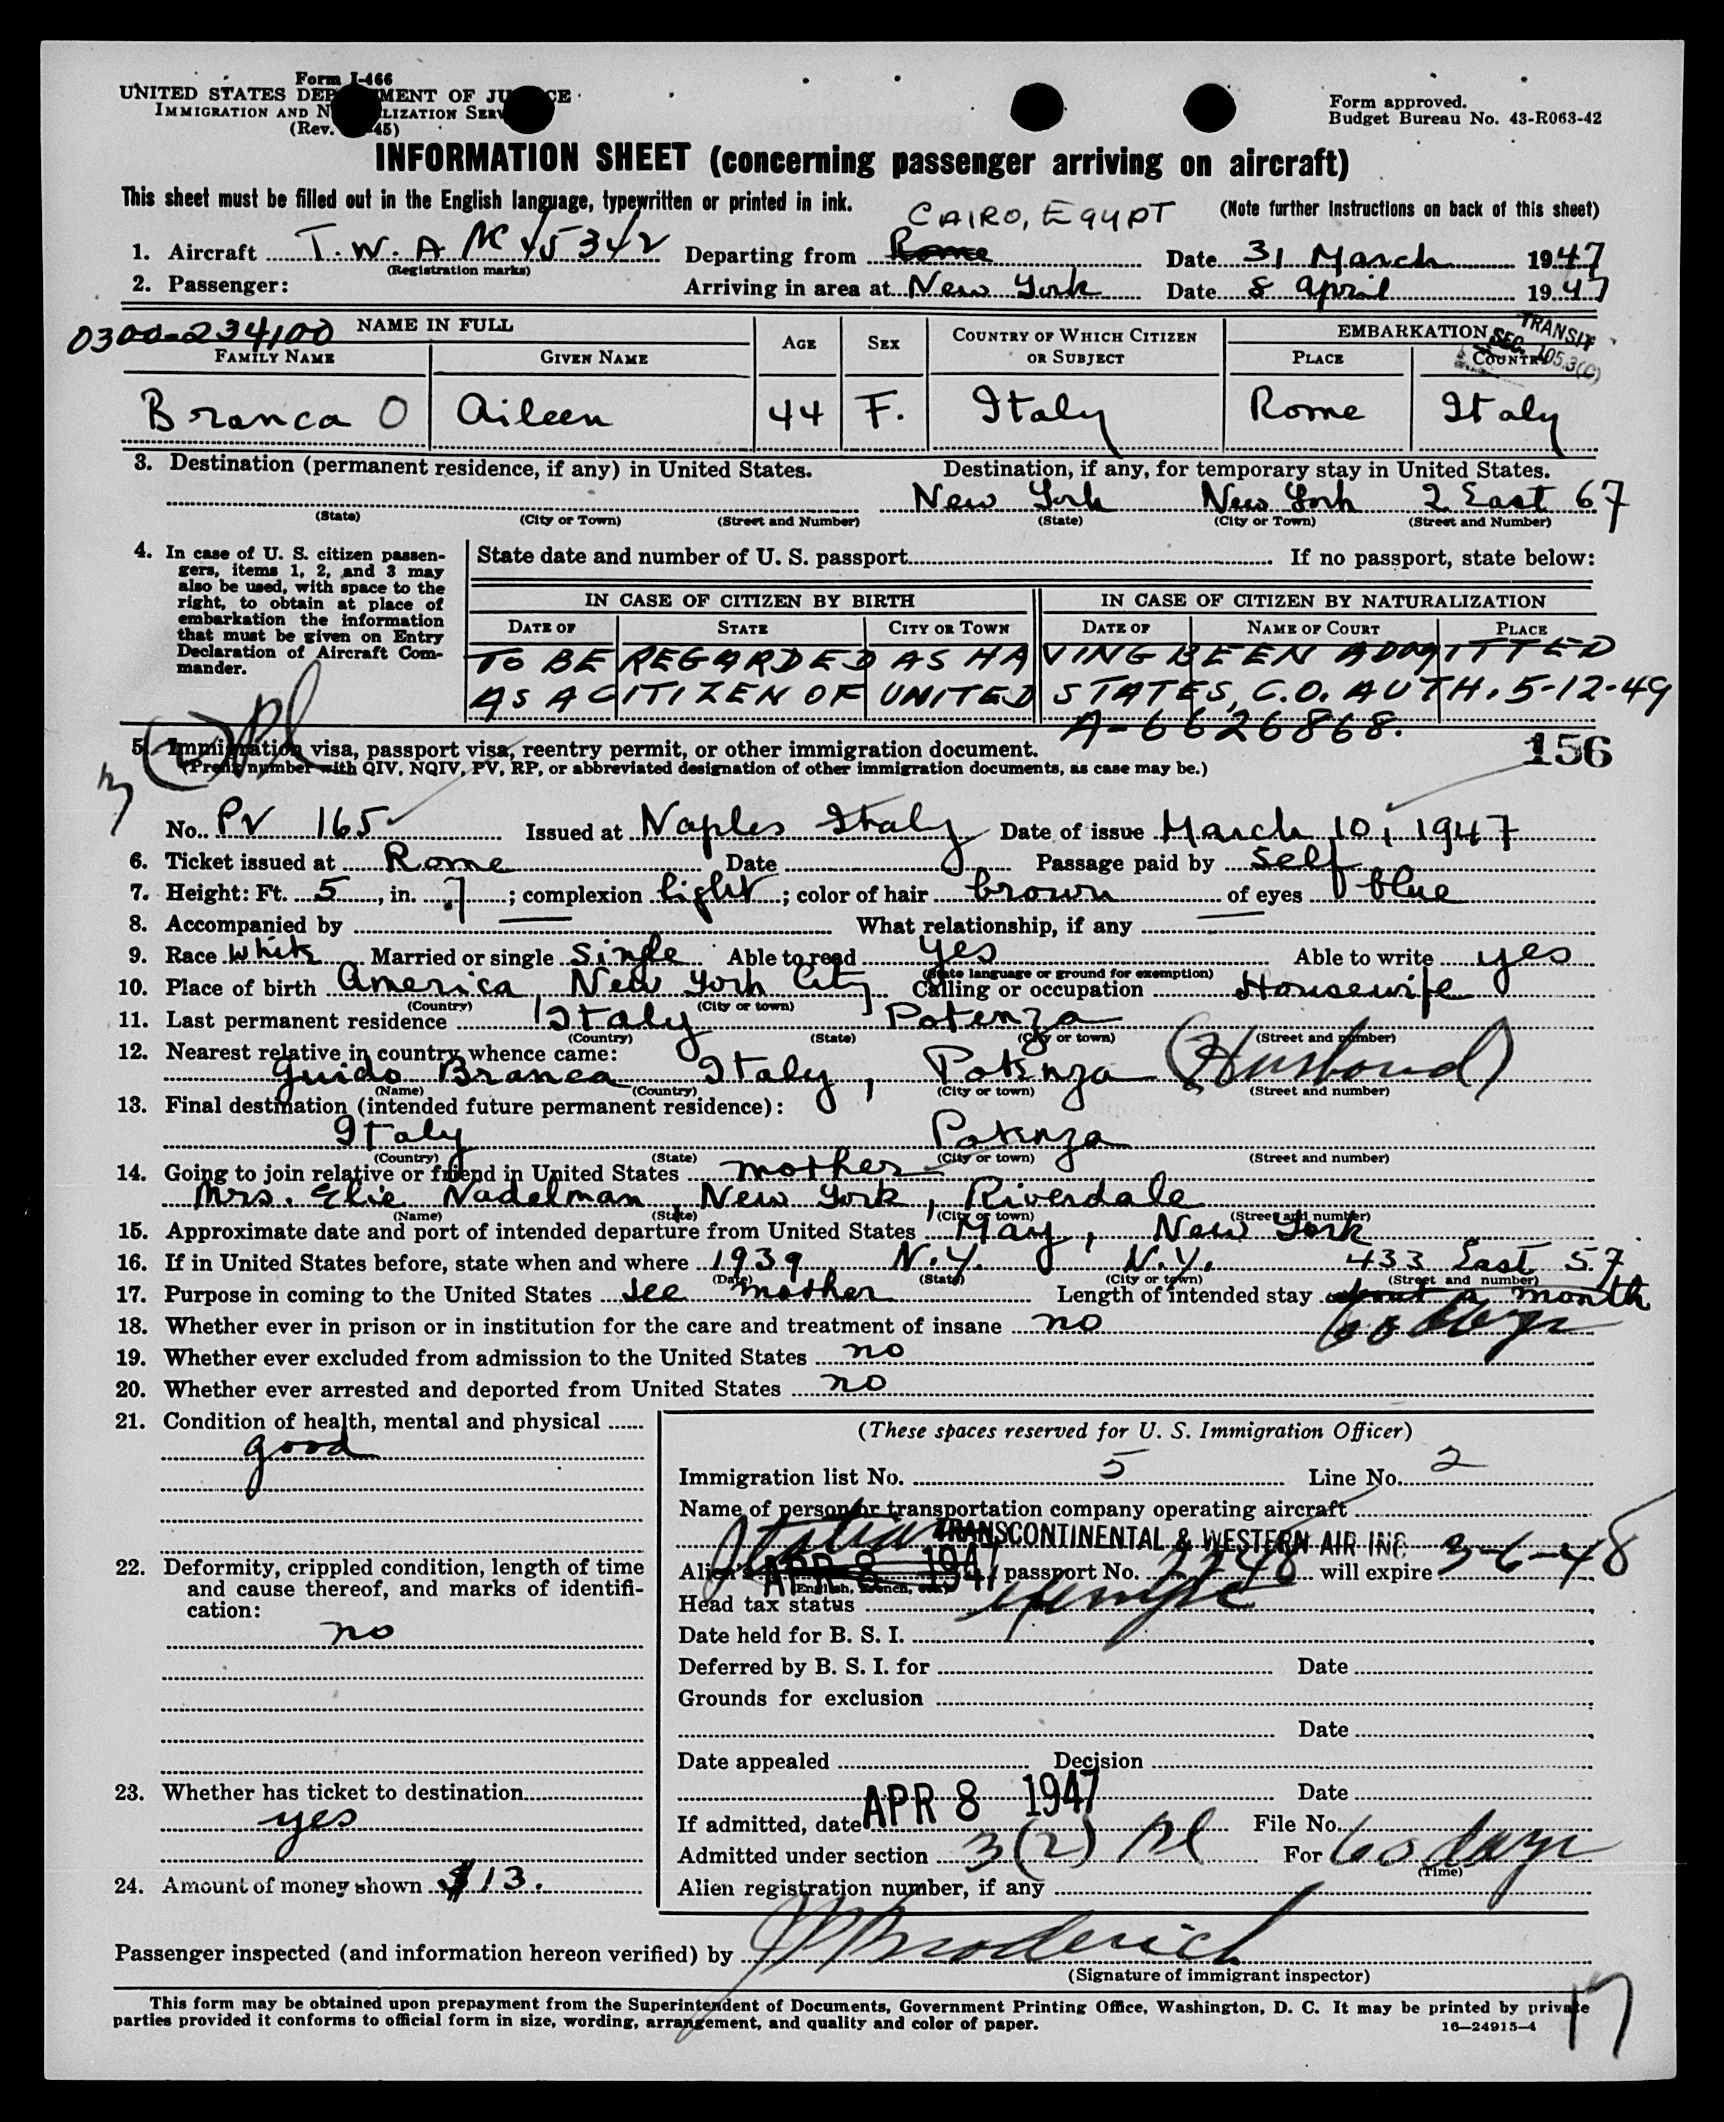 Form I-466
UNITED STATES DEP MENT OF JU CE
IMMIGRATION AND N LIZATION SERV
(Rev. 45)
Form approved.
Budget Bureau No. 43-R063-42
INFORMATION SHEET (concerning passenger arriving on aircraft)
This sheet must be filled out in the English language, typewritten or printed in ink.
(Note further instructions on back of this sheet)
CAIRO, EGYPT
1. Aircraft T.W.A NC 45342 Departing from Rome Date 31 March 1947
(Registration marks)
2. Passenger: Arriving in area at New York Date 8 April 1947
0300-234100 NAME IN FULL AGE SEX COUNTRY OF WHICH CITIZEN OR SUBJECT EMBARKATION
TRANSIT
SEC. 105.3(c)
FAMILY NAME GIVEN NAME PLACE COUNTRY
Branca O Aileen 44 F. Italy Rome Italy
3. Destination (permanent residence, if any) in United States. Destination, if any, for temporary stay in United States.
New York New York 2 East 67
(State) (City or Town) (Street and Number) (State) (City or Town) (Street and Number)
4. In case of U. S. citizen passen-
gers, items 1, 2, and 3 may
also be used, with space to the
right, to obtain at place of
embarkation the information
that must be given on Entry
Declaration of Aircraft Com-
mander.
State date and number of U. S. passport If no passport, state below:
IN CASE OF CITIZEN BY BIRTH IN CASE OF CITIZEN BY NATURALIZATION
DATE OF STATE CITY OR TOWN DATE OF NAME OF COURT PLACE
TO BE REGARDED AS HAVING BEEN ADMITTED
AS A CITIZEN OF UNITED STATES, C.O. AUTH. 5-12-49
A-6626868.
3(2) Pl
156
5. Immigration visa, passport visa, reentry permit, or other immigration document.
(Prefix number with QIV, NQIV, PV, RP, or abbreviated designation of other immigration documents, as case may be.)
No. PV 165 Issued at Naples Italy Date of issue March 10, 1947
6. Ticket issued at Rome Date Passage paid by self
7. Height: Ft. 5, in. 7; complexion light; color of hair brown of eyes blue
8. Accompanied by What relationship, if any
9. Race White Married or single Single Able to read yes Able to write yes
(State language or ground for exemption)
10. Place of birth America, New York City Calling or occupation Housewife
(Country) (City or town)
11. Last permanent residence Italy Potenza
(Country) (State) (City or town) (Street and number)
12. Nearest relative in country whence came:
Guido Branca Italy, Potenza (Husband)
(Name) (Country) (City or town) (Street and number)
13. Final destination (intended future permanent residence):
Italy Potenza
(Country) (State) (City or town) (Street and number)
14. Going to join relative or friend in United States mother
Mrs. Elie Nadelman New York, Riverdale
(Name) (State) (City or town) (Street and number)
15. Approximate date and port of intended departure from United States May, New York
16. If in United States before, state when and where 1939 N.Y. N.Y. 433 East 57
(Date) (State) (City or town) (Street and number)
17. Purpose in coming to the United States see mother Length of intended stay about a month
60 days
18. Whether ever in prison or in institution for the care and treatment of insane no
19. Whether ever excluded from admission to the United States no
20. Whether ever arrested and deported from United States no
21. Condition of health, mental and physical
good
22. Deformity, crippled condition, length of time
and cause thereof, and marks of identifi-
cation:
no
23. Whether has ticket to destination
yes
24. Amount of money shown $13.
(These spaces reserved for U. S. Immigration Officer)
Immigration list No. 5 Line No. 2
Name of person or transportation company operating aircraft
TRANSCONTINENTAL & WESTERN AIR INC
Alien's Italian APR 8 1947 passport No. 2248 will expire 3-6-48
(English, French, etc.)
Head tax status exempt
Date held for B. S. I.
Deferred by B. S. I. for Date
Grounds for exclusion
Date
Date appealed Decision
Date
If admitted, date APR 8 1947 File No.
Admitted under section 3(2) Pl For 60 days
(Time)
Alien registration number, if any
Passenger inspected (and information hereon verified) by Broderick
(Signature of immigrant inspector)
This form may be obtained upon prepayment from the Superintendent of Documents, Government Printing Office, Washington, D. C. It may be printed by private
parties provided it conforms to official form in size, wording, arrangement, and quality and color of paper.
16—24915-4
17